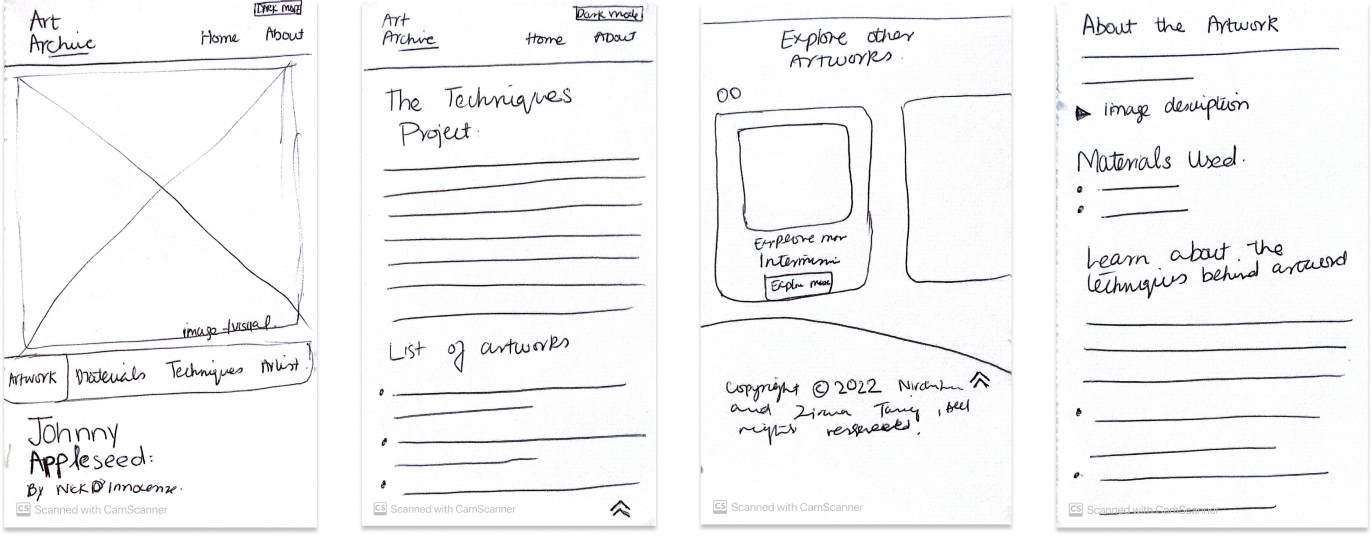 Art
Archive
Dark mode
Home About
image/visual.
Artwork Materials Techniques Artist
Johnny
Appleseed:
By Nick D'Innocenze.
CS Scanned with CamScanner
Art
Archive
Dark mode
Home About
The Techniques
Project.
List of artworks
CS Scanned with CamScanner
Explore other
Artworks.
Explore mor
Explore more
Copyright © 2022
and Tang, All
rights reserved.
CS Scanned with CamScanner
About the Artwork
image description
Materials Used.
Learn about the
techniques behind artword
CS Scanned with CamScanner